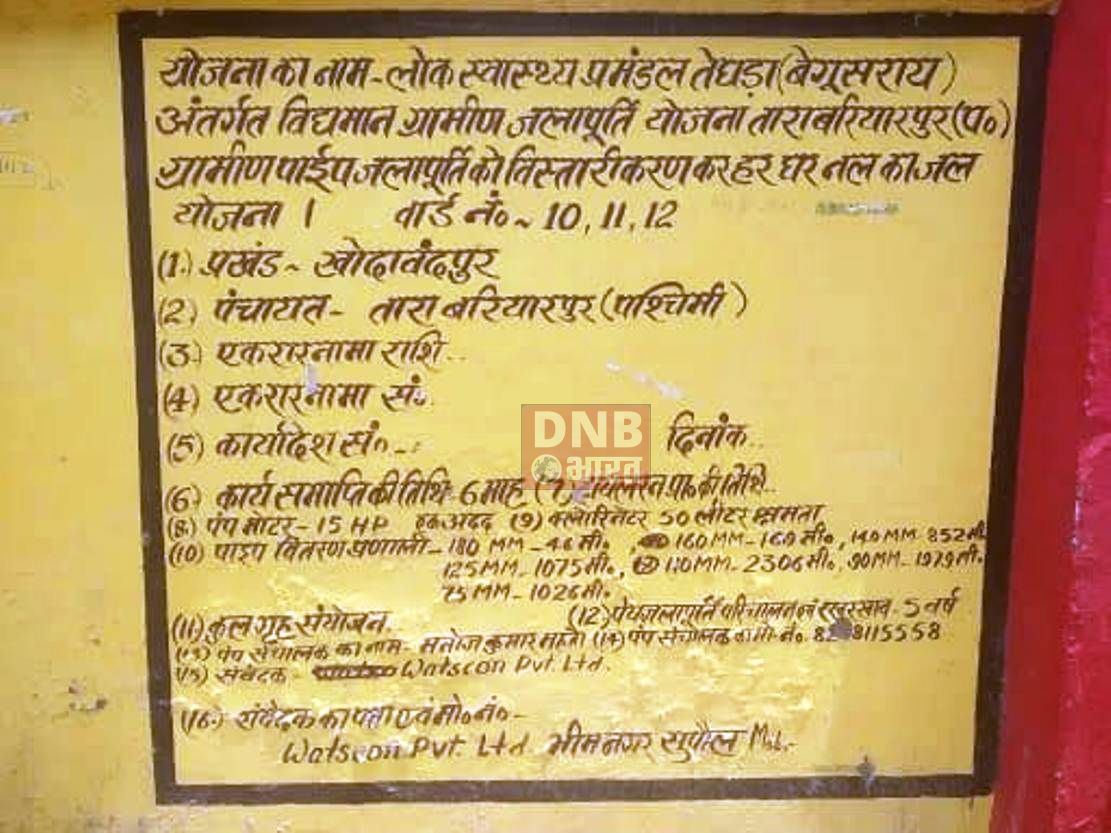 योजना का नाम - लोक स्वास्थ्य प्रमंडल तेघड़ा (बेगूसराय)
अंतर्गत विद्यमान ग्रामीण जलापूर्ति योजना तारा बरियारपुर (प०)
ग्रामीण पाईप जलापूर्ति को विस्तारीकरण कर हर घर नल का जल
योजना । वार्ड नं० ~ 10, 11, 12
(1.) प्रखंड ~ खोदावंदपुर
(2) पंचायत - तारा बरियारपुर (पश्चिमी)
(3.) एकरारनामा राशि..
(4) एकरारनामा सं०.
(5) कार्यादेश सं० -. दिनांक..
DNB
भारत
(6) कार्य समाप्ति की तिथि 6 माह (7) की तिथि..
(8.) पंप मोटर - 15 HP एक अदद (9) क्लोरिनेटर 50 लीटर क्षमता
(10) पाइप वितरण प्रणाली - 180 MM - 46 मी०, 160 MM - 169 मी०, 140 MM 852 मी०
125 MM - 1075 मी०, 110 MM - 2306 मी०, 90 MM - 1979 मी०
75 MM - 1026 मी०
(11) कुल गृह संयोजन. (12) पेयजलापूर्ति परिचालन एवं रखरखाव - 5 वर्ष
(13) पंप संचालक का नाम - मनोज कुमार (14) पंप संचालक का मो० नं०
(15) संवेदक - Watscon Pvt. Ltd.
(16.) संवेदक का पता एवं मो० नं० -
Watscon Pvt. Ltd. भीमनगर सुपौल